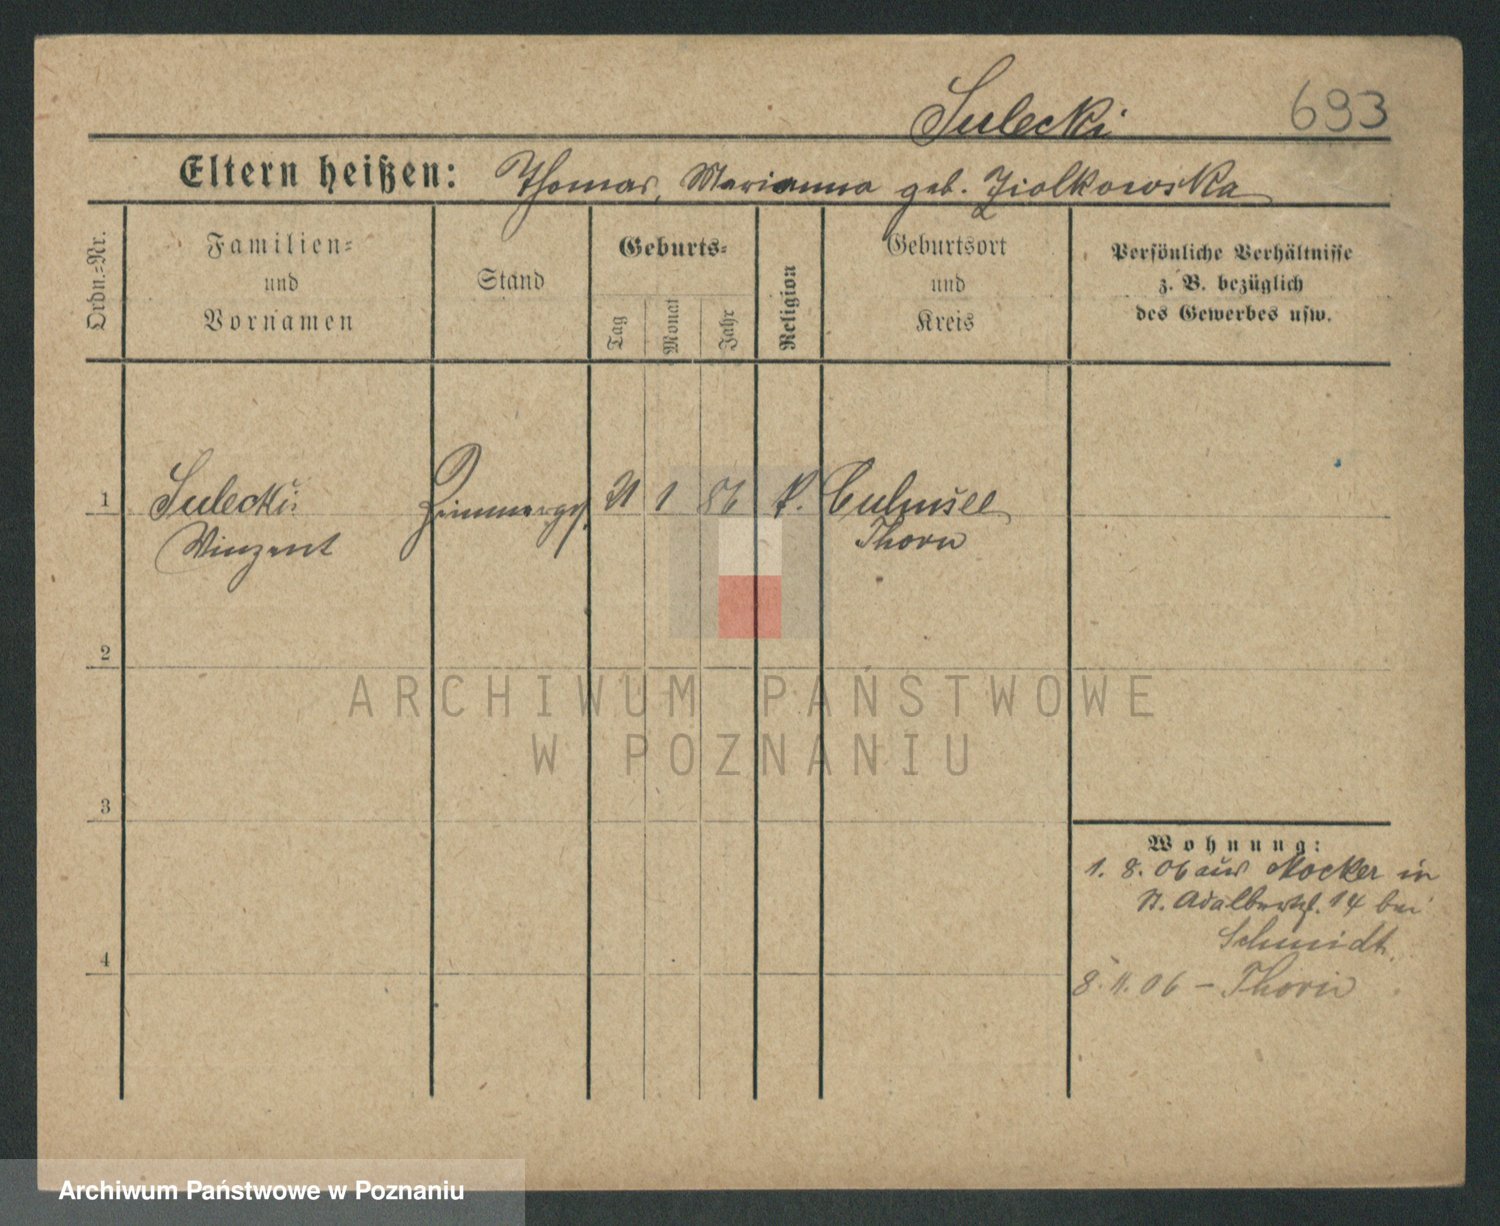 Sulecki 693
Eltern heißen: Thomas, Marianna geb. Ziolkowska
Ordn.=Nr.
Familien=
und
Vornamen
Stand
Geburts=
Tag
Monat
Jahr
Religion
Geburtsort
und
Kreis
Persönliche Verhältnisse
z. B. bezüglich
des Gewerbes usw.
1 Sulecki Zimmerges. 21 1 86 k. Culmsee
Winzent Thorn
2
3
4
Wohnung:
1. 8. 06 aus Mocker in
St. Adalbertst. 14 bei
Schmidt.
8. 11. 06 – Thorn
ARCHIWUM PAŃSTWOWE
W POZNANIU
Archiwum Państwowe w Poznaniu